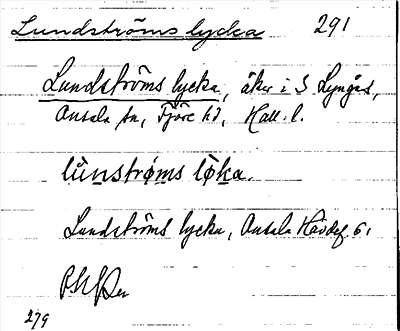 Lundströms lycka 291
Lundströms lycka, åker i S Lyngås,
Onsala sn, Fjäre hd, Hall. l.
lu̇nstrøms løka.
Lundströms lycka, Onsala Hävdef. 6,
279